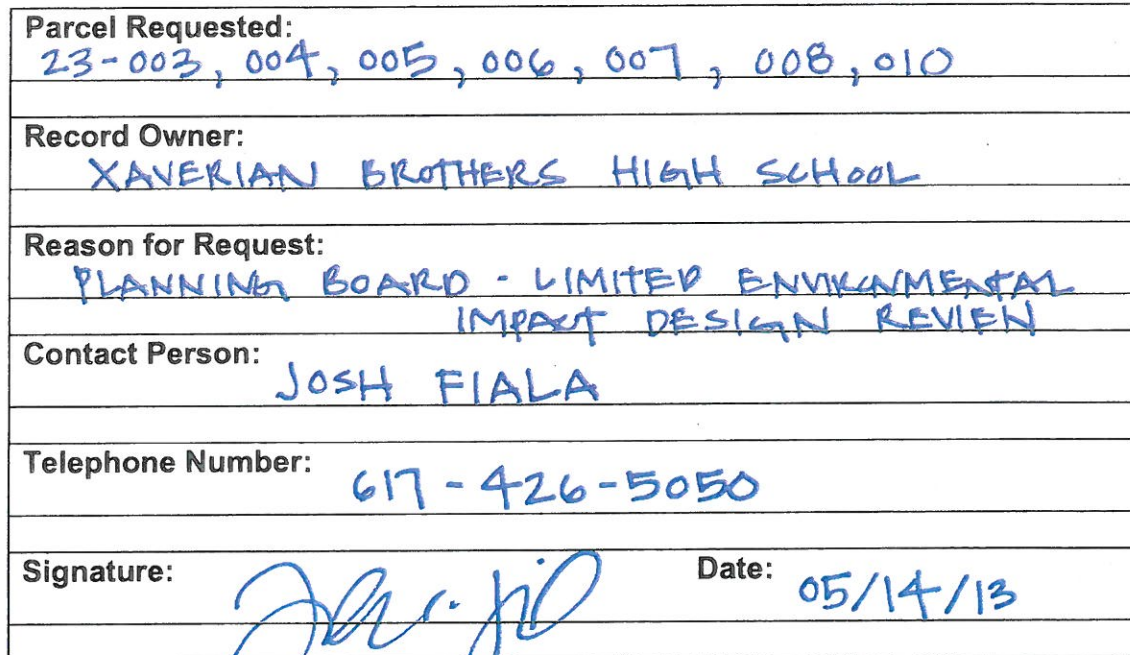 Parcel Requested:
23-003, 004, 005, 006, 007, 008, 010
Record Owner:
XAVERIAN BROTHERS HIGH SCHOOL
Reason for Request:
PLANNING BOARD - LIMITED ENVIRONMENTAL
IMPACT DESIGN REVIEW
Contact Person:
JOSH FIALA
Telephone Number:
617-426-5050
Signature: Date: 05/14/13